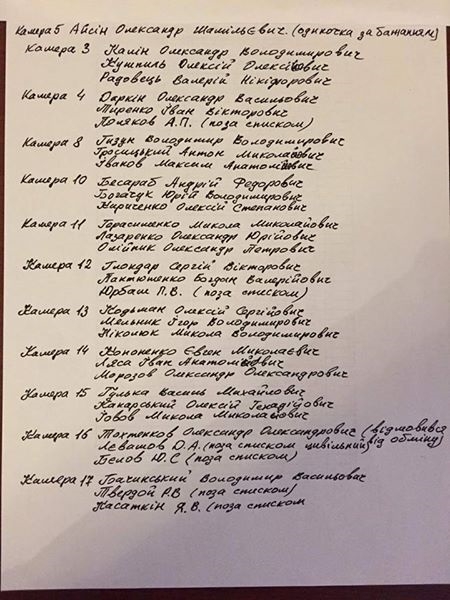 Камера 5 Айсін Олександр Шамільєвич. (одиночка за бажанням)
Камера 3 Калін Олександр Володимирович
Кушпиль Олексій Олексійович
Радовець Валерій Нікіфорович
Камера 4 Даркін Олександр Васильович
Тиренко Іван Вікторович
Поляков А.П. (поза списком)
Камера 8 Гизун Володимир Володимирович
Гросицький Антон Миколайович
Іванов Максим Анатолійович
Камера 10 Бесараб Андрій Федорович
Богачук Юрій Володимирович
Кириченко Олексій Степанович
Камера 11 Герасименко Микола Миколайович
Лазаренко Олександр Юрійович
Олійник Олександр Петрович
Камера 12 Глондар Сергій Вікторович
Пантюшенко Богдан Валерійович
Юрбаш П.В. (поза списком)
Камера 13 Кодьман Олексій Сергійович
Мельник Ігор Володимирович
Ніколюк Микола Володимирович
Камера 14 Кононенко Євген Миколаєвич
Ляса Іван Анатолійович
Морозов Олександр Олександрович
Камера 15 Гулька Василь Михайлович
Какарський Олексій Генадійович
Говов Микола Миколайович
Камера 16 Тохтенков Олександр Олександрович (відмовився
Левашов О.А. (поза списком цивільний) від обміну)
Бєлов Ю.С (поза списком)
Камера 17 Бачинський Володимир Васильович
Твердой Р.В (поза списком)
Касаткін Я.В. (поза списком